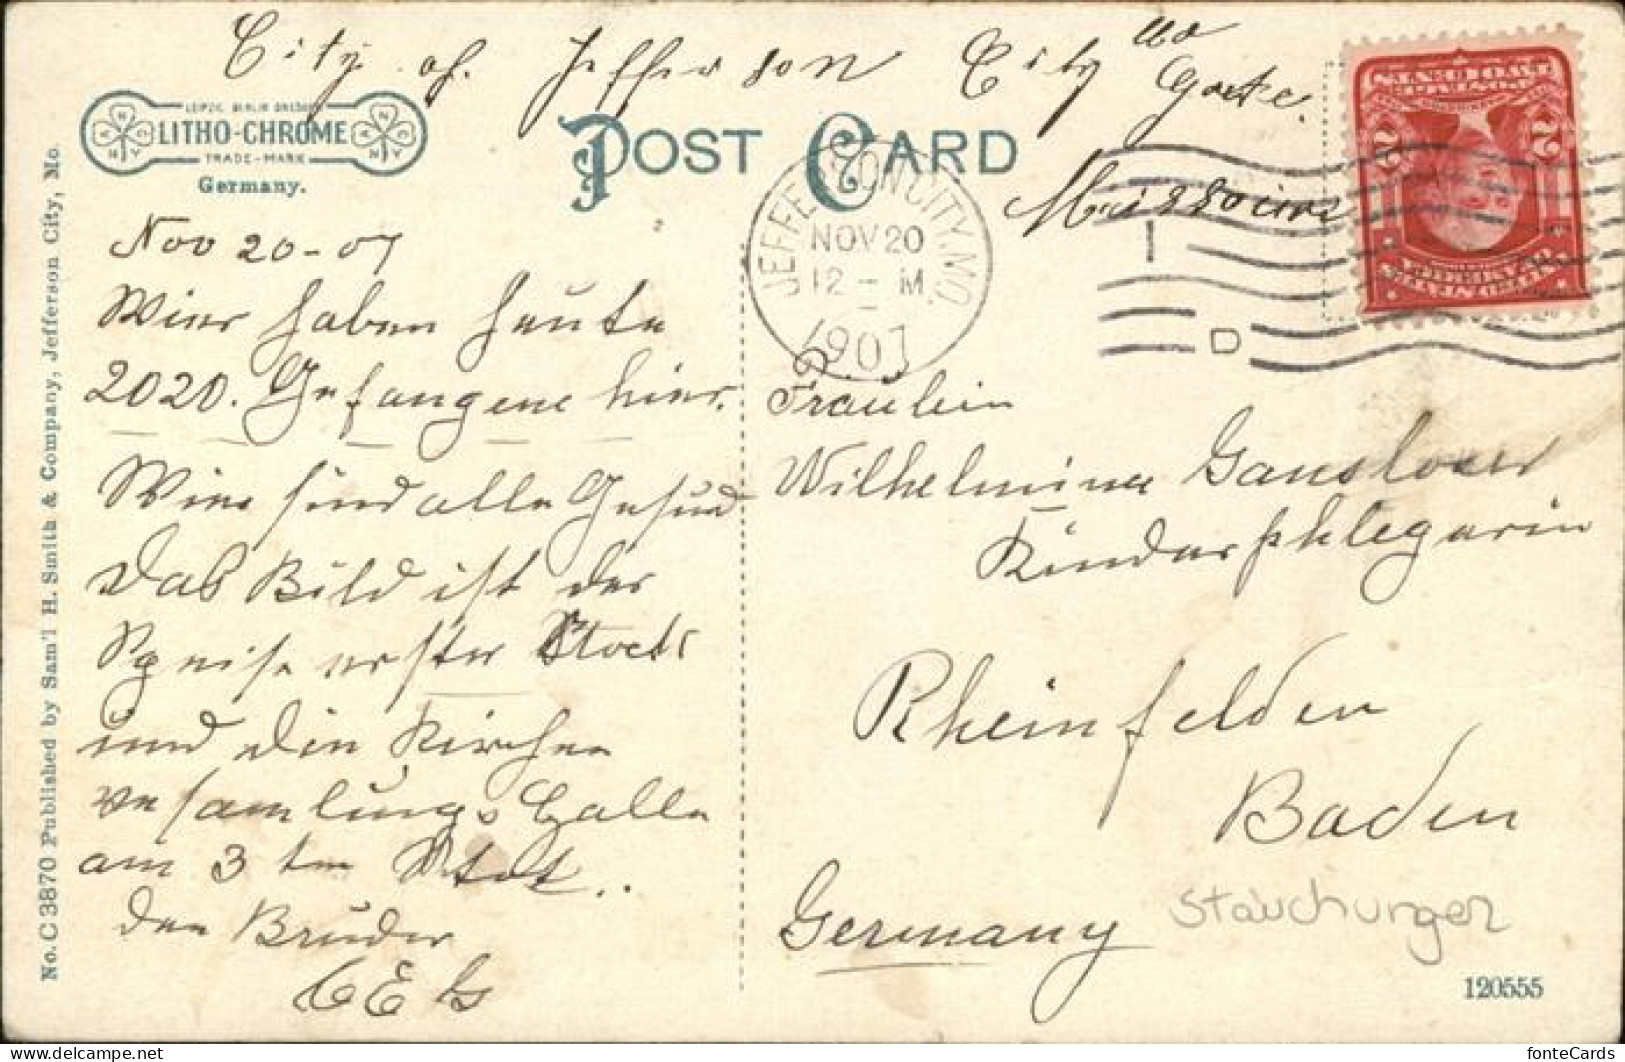 City of Jefferson City
Missouri
LEIPZIG BERLIN DRESDEN
LITHO-CHROME
TRADE-MARK
Germany.
POST CARD
JEFFERSON CITY, MO.
NOV 20
12 - M
1907
D
UNITED STATES OF AMERICA
2 2
TWO CENTS
No. C 3870 Published by Sam'l H. Smith & Company, Jefferson City, Mo.
Nov 20-07
Wier haben heute
2020. Gefangene hier.
Wier sind alle Gesund
Das Bild ist der
Speise erster Stock
und die Kirchen
vesamlungs Halle
am 3 ten
den Bruder
Fräulein
Wilhelmine
Kinderphlegerin
Rheinfelden
Baden
Germany
Stauchungen
120555
fonteCards
delcampe.net